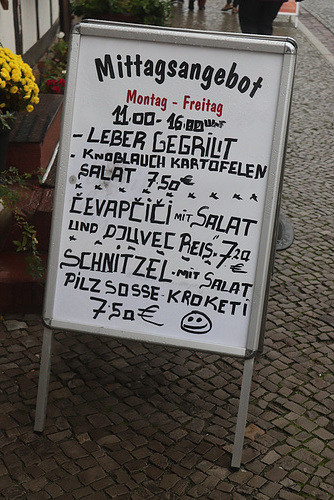 Mittagsangebot
Montag - Freitag
11.00 - 16.00 UHR
- LEBER GEGRILLT
- KNOBLAUCH KARTOFELEN
SALAT 7.50€
ČEVAPČIČI MIT SALAT
UND DJUVEC REIS, 7.20
€
SCHNITZEL - MIT SALAT
PILZ SOSSE - KROKETI
7.50€